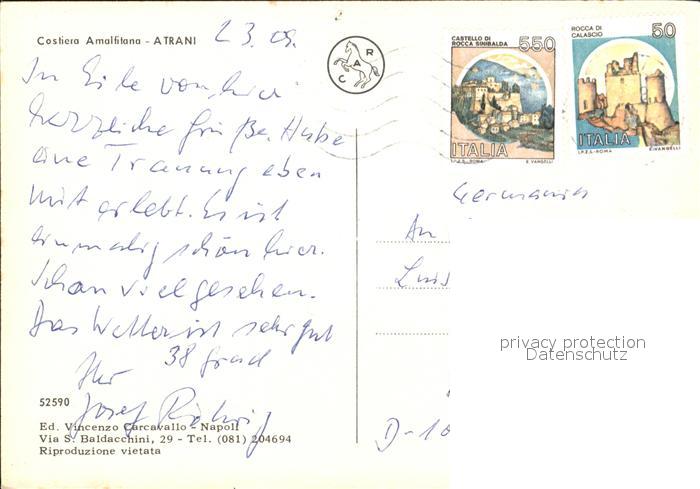 Costiera Amalfitana - ATRANI
23.09.
In Eile von hier
herzliche Grüße. Habe
eine Trauung eben
mit erlebt. Es ist
einmalig schön hier.
Schon viel gesehen.
Das Wetter ist sehr gut
38 Grad
Ihr
Josef
52590
Ed. Vincenzo Carcavallo - Napoli
Via S. Baldacchini, 29 - Tel. (081) 204694
Riproduzione vietata
CAR
CASTELLO DI
ROCCA SINIBALDA
550
ITALIA
I.P.Z.S. - ROMA E. VANGELLI
ROCCA DI
CALASCIO
50
ITALIA
I.P.Z.S. - ROMA E. VANGELLI
Germania
An
Luis
privacy protection
Datenschutz
D-10